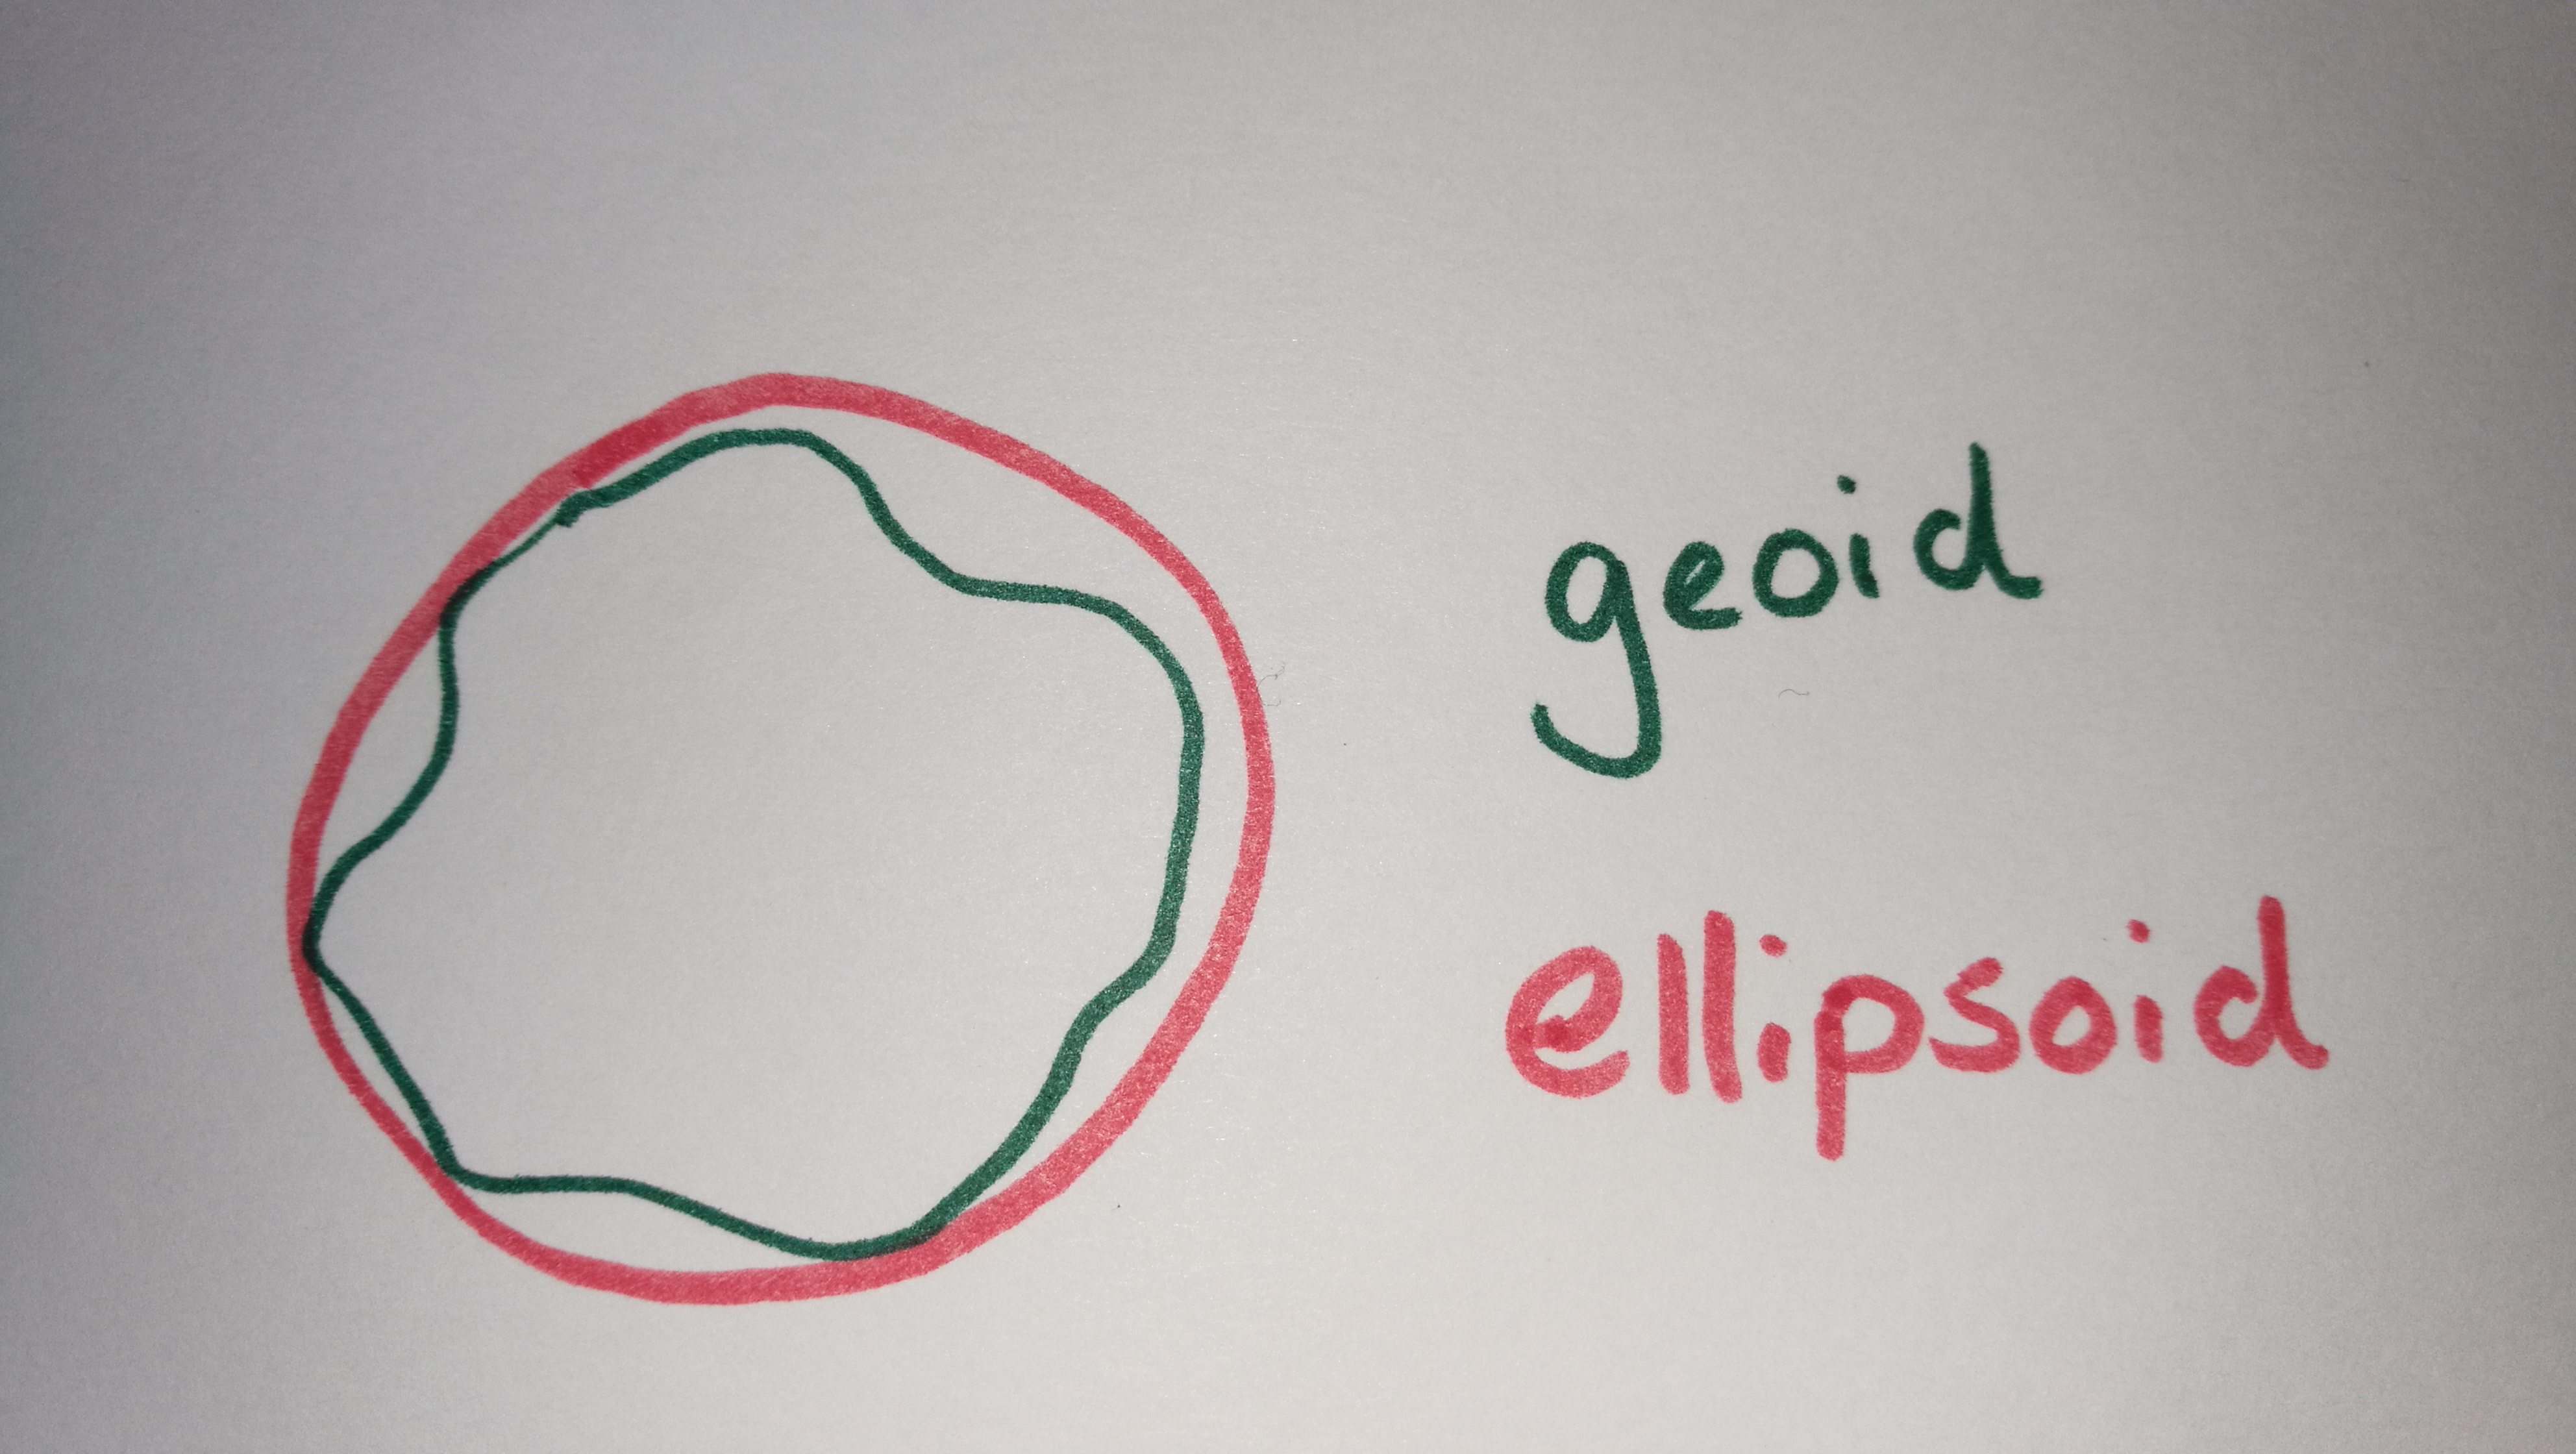 geoid
ellipsoid